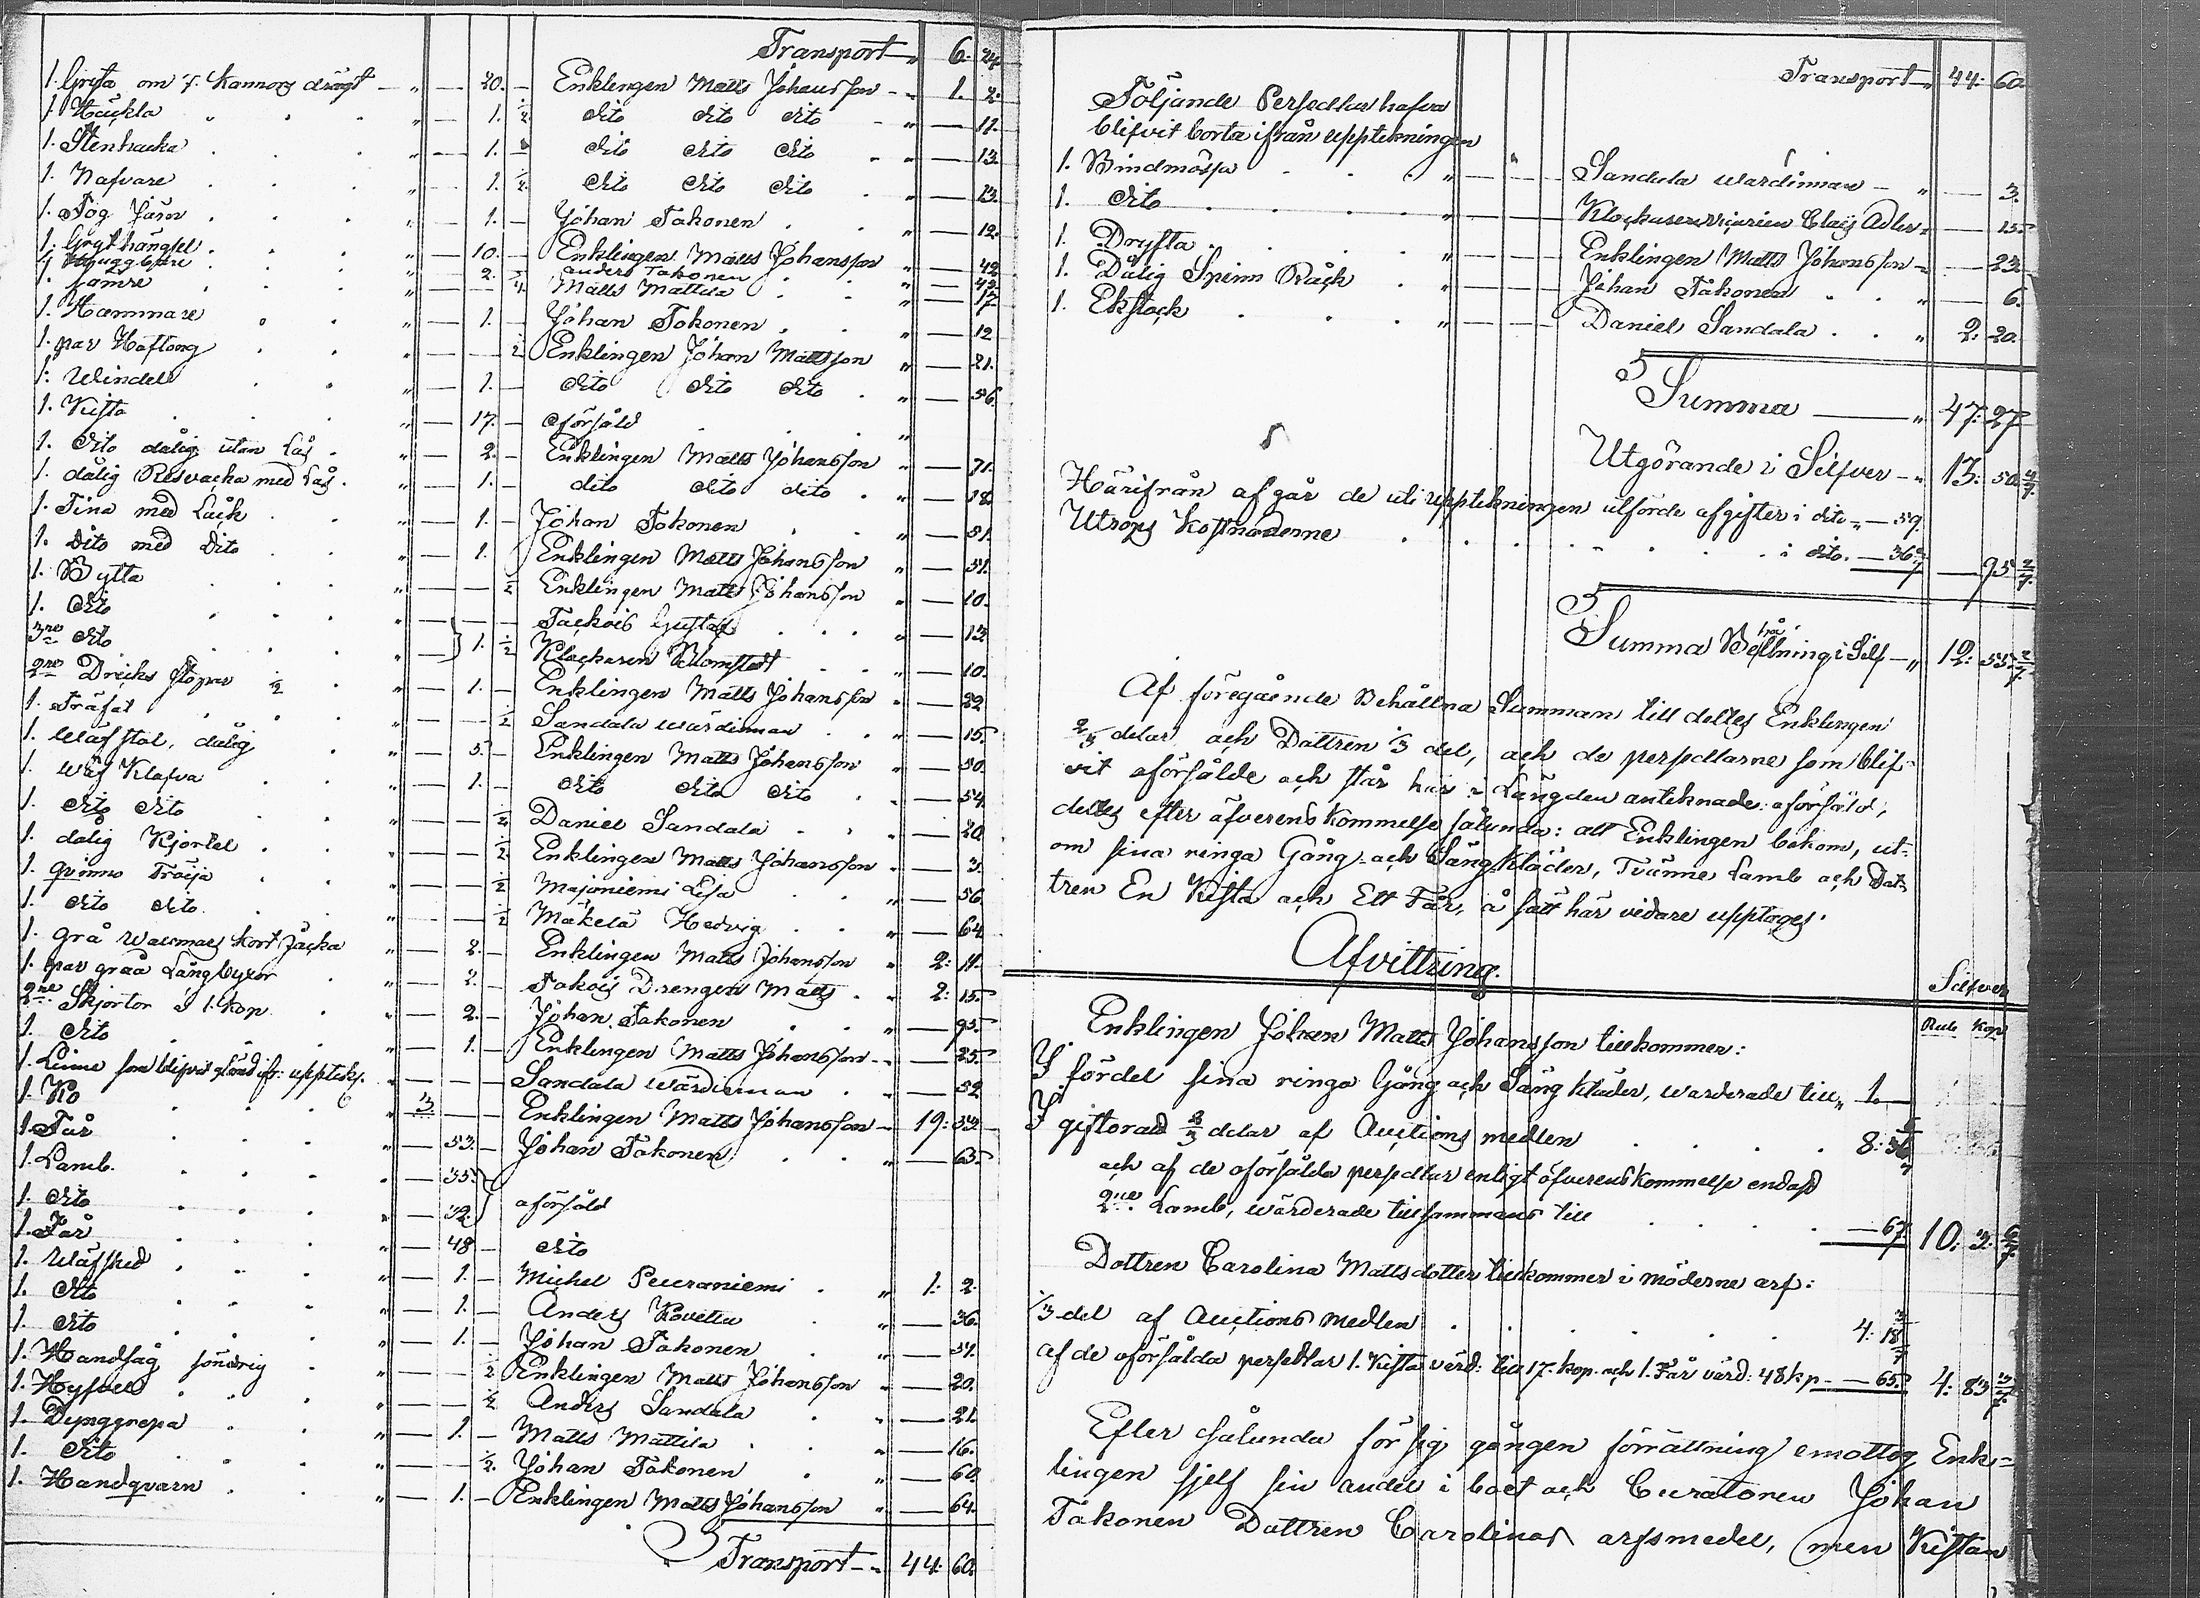 Transport " 6. 24.
1. Gryta om 7. Kannors drägt " — 20. — Enklingen Matts Johansson " 1. 2.
1. Häckla " — 1. ½ dito dito dito " — 11.
1. Stenhacka " — 1. dito dito dito " — 13.
1. Nafvare " — 1. ½ dito dito dito " — 13.
1. Tög Järn " — 1. — Johan Takonen " — 12.
1. Grythängsel " — 10. — Enklingen Matts Johansson " — 42.
1. " — 2. Anders Takonen " — 42.
1. sämre " — ¾ Matts Mattila " — 17.
1. Hammare " — 1. — Johan Takonen " — 12
1. par Håftong " — ½ Enklingen Johan Mattsson " — 21.
1. Windel " — 1. — dito dito dito " — 56.
1. Kista " — 17. — oförsåld "
1. dito dålig utan Lås " — 2. — Enklingen Matts Johansson " — 71.
1. dålig Resvacka med Lås " — 1. — dito dito dito " — 18.
1. Tina med Låck " — 1. — Johan Takonen " — 51.
1. Dito med Dito " — 1. Enklingen Matts Johansson " — 51.
1. Bytta " — ½ Enklingen Matts Johansson " — 10.
1. dito " — Tackois Gustaf " — 12
3ne dito " — 1. ½ Klockaren Blomstedt " — 10.
2ne Dricks Stopar ½ " — 1. — Enklingen Matts Johansson " — 22
1. Träfat " — ½ Sandala wärdinnan " — 15.
1. Wäfstol, dålig " — 5. — Enklingen Matts Johansson " — 50.
1. Wäf Klafva " — 1. — dito dito dito " — 54.
1. dito dito " — ½ Daniel Sandala " — 20.
1. dålig Kjortel " — ½ Enklingen Matts Johansson " — 3.
1. qvinno Tröija " — ½ Majoniemi Lisa " — 56.
1. dito dito " — ½ Mäkelä Hedvig " — 64
1. grå Wallmars kort Jacka " — 2. — Enklingen Matts Johansson " 2: 11.
1. par gråa Långbyxor " — 2. — Takois Drengen Matts " 2: 15.
2ne Skjortor á 1. Kop " — 2. — Johan Takonen " — 95.
1. dito " — 1. — Enklingen Matts Johansson " — 25.
1. Linne som blifvit glömd ifr: upptekn. " — Sandala Wärdinnan " — 52
1. Ko " 3. — Enklingen Matts Johansson 19: 53.
1. Får " — 53. — Johan Takonen " — 63.
1. Lamb. " — 35.
1. dito " — 32. oförsåld
1. Får " — 48 — dito
1. Wäfsked " — 1. — Michel Peuraniemi " 1: 2
1. dito " — 1. — Anders Kovettu " — 36.
1. dito " — 1. — Johan Takonen " — 51.
1. Handsåg söndrig " — ½ Enklingen Matts Johansson " — 20.
1. Hyfvel " — ½ Anders Sandala " — 21.
1. Dynggrepa " — 1. — Matts Mattila " — 16.
1. dito " — ½. Johan Takonen " — 60.
1. Handqvarn " — 1. — Enklingen Matts Johansson " — 64.
Transport " 44: 60.
Transport " 44: 60.
Följande Persedlar hafva
blifvit borta ifrån upptekningen
1. Bindmössa " — Sandala wärdinnan " — 3.
1. dito " — Klockarens Claes Adler " — 15.
1. Dryfta " — Enklingen Matts Johansson " — 23.
1. Dålig Spinn Råck " — Johan Takonen " — 6.
1. Ekstock " — Daniel Sandala " 2: 20.
Summa " 47: 27
Utgörande i Silfver " 13: 50 4/7.
Härifrån afgår de uti upptekningen utförde afgifter i dito " — 59
Utrops Kostnaderne i dito. — 36 2/7 — 95 2/7.
Summa Behållning i Silf " 12: 55 2/7
Af föregående Behållna Summan till deltes Enklingen
2/3 delar ach Dottren 1/3 del, ach de persedlarne som blif-
vit oförsålde ach står här i Längden anteknade oförsåld,
deltes efter åfverenskommelse sålunda: att Enklingen bekom, ut-
om sina ringa Gång- ach Sängkläder, Tvänne Lamb ach Dot-
tren En Kista ach Ett Får, å sätt här vidare upptages.
Afvittring.
Silfver
Rub Kop
Enklingen Johan Matts Johansson tillkommer:
I fördel sina ringa Gång ach Sängkläder, warderade till " 1. —
I giftorätt 2/3 delar af Auctions medlen 8: 36 6/7
ach af de oförsålda persedlar enligt öfverenskommelse endast
2ne Lamb, wärderade tillsammans till — 67. 10: 3. 6/7.
Dottren Carolina Mattsdotter tillkommer i möderne arf:
1/3 del af Auctions medlen 4: 18 3/7
af de oförsålda persedlar 1. Kista värd: till 17. kop. ach 1. Får värd: 48 kp — 65. 4: 83 3/7
Efter sålunda för sig gången förrättning emottog Enk=
lingen sjelf sin andel i boet ach Curatoren Johan
Takonen Dottren Carolinas arfsmedel, men Kistan